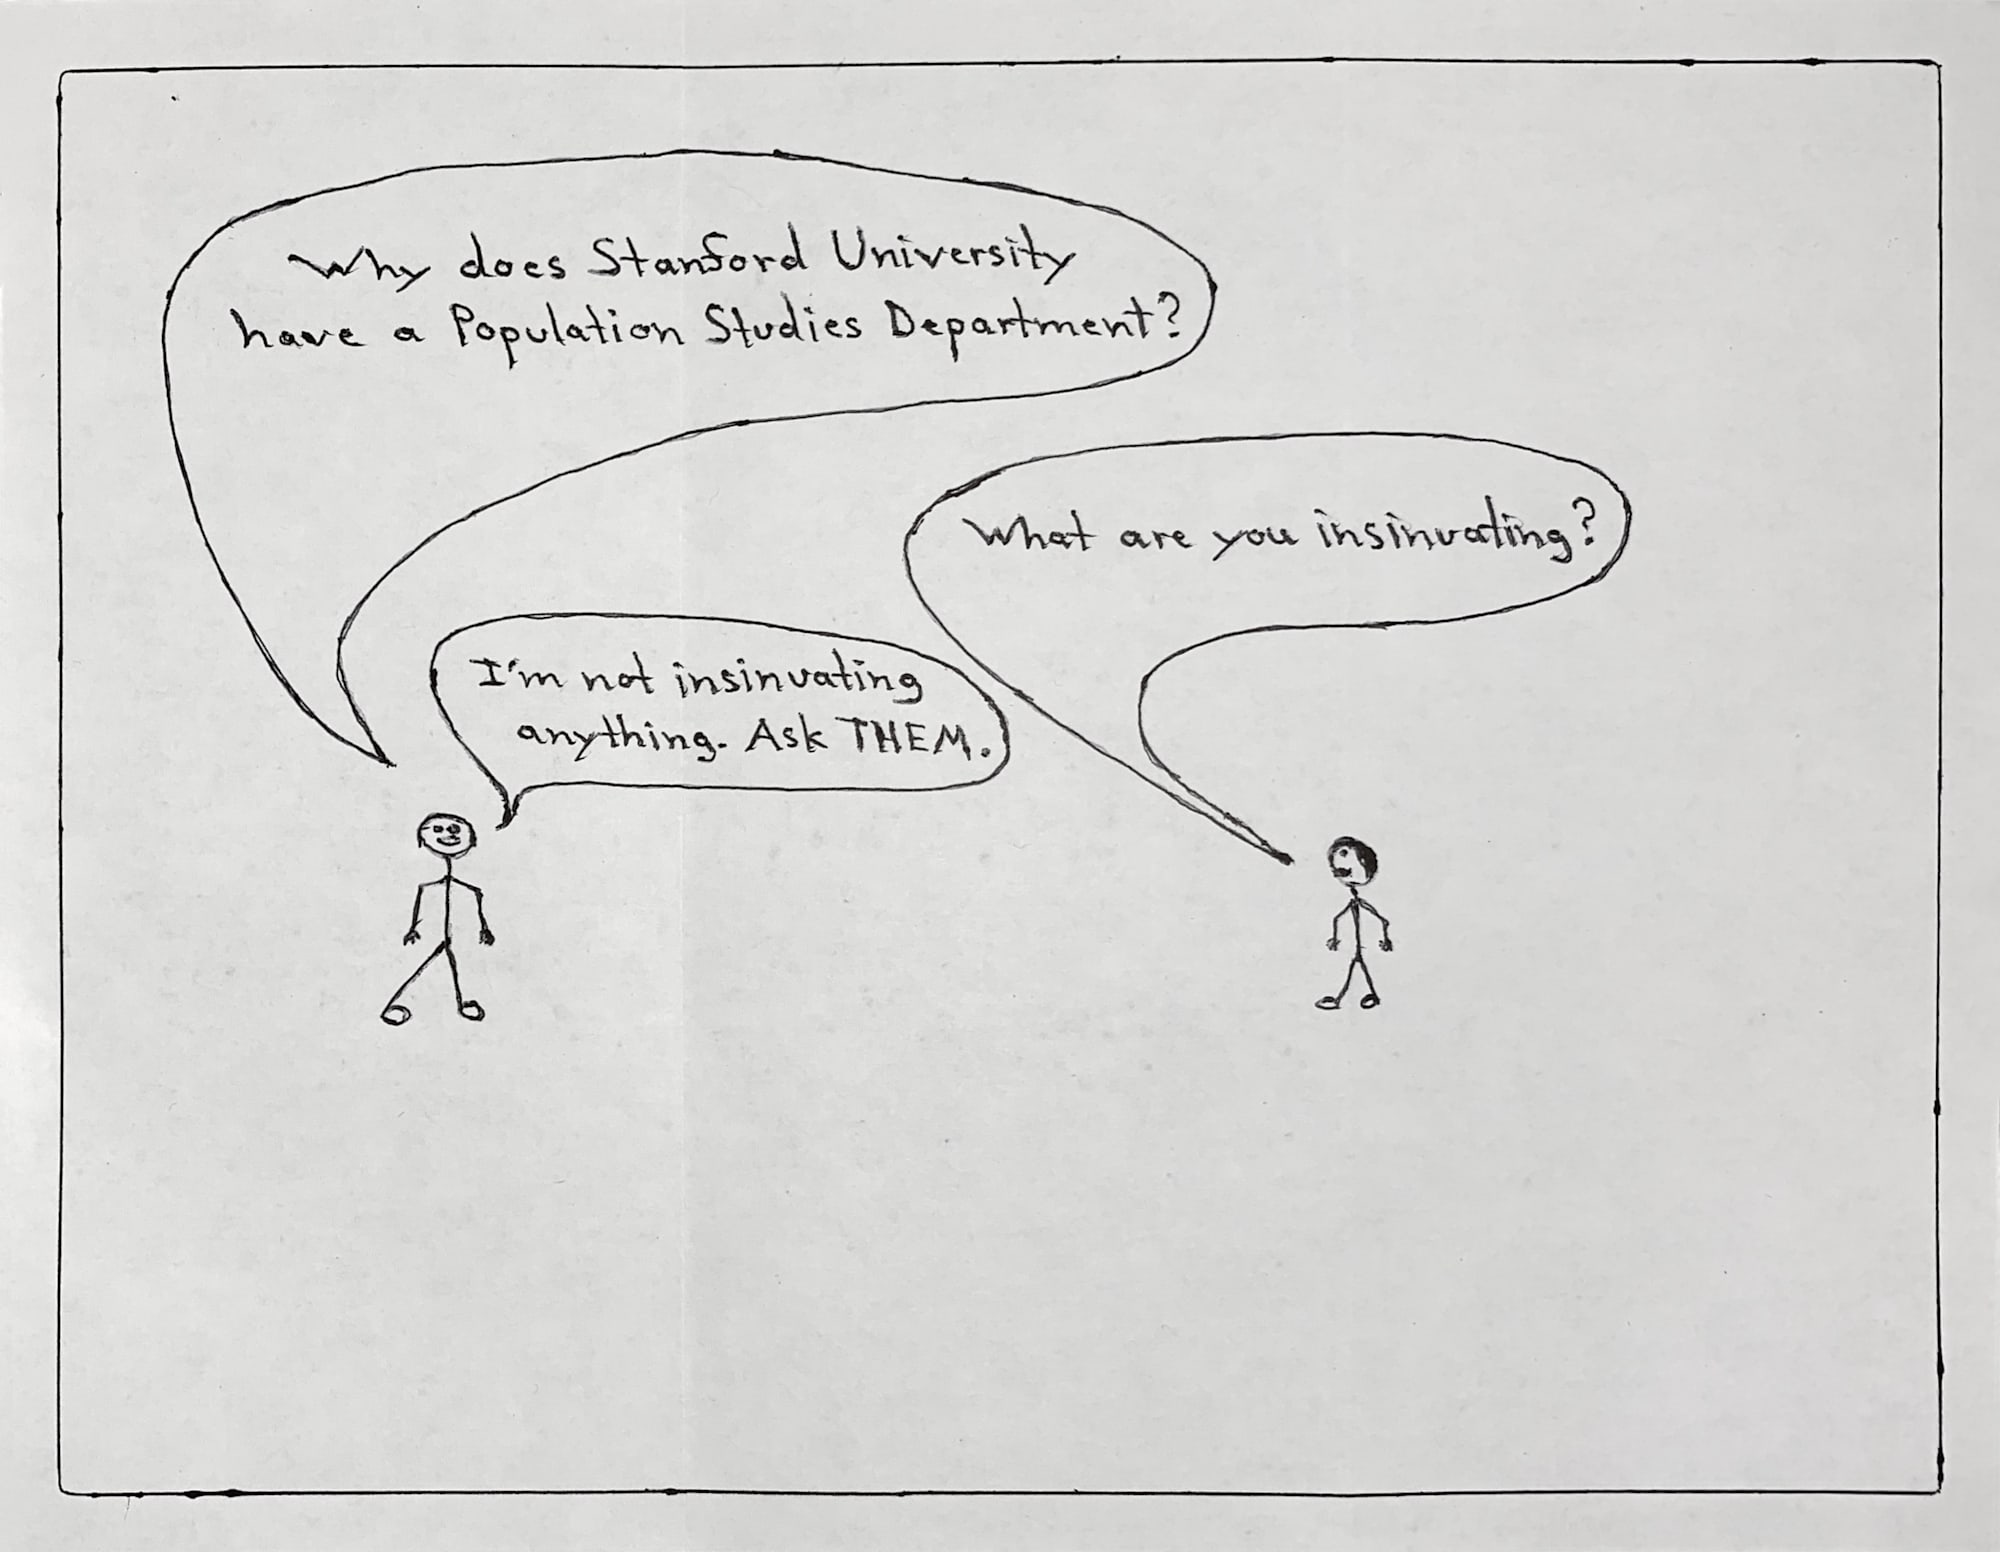 Why does Stanford University
have a Population Studies Department?
What are you insinuating?
I'm not insinuating
anything. Ask THEM.